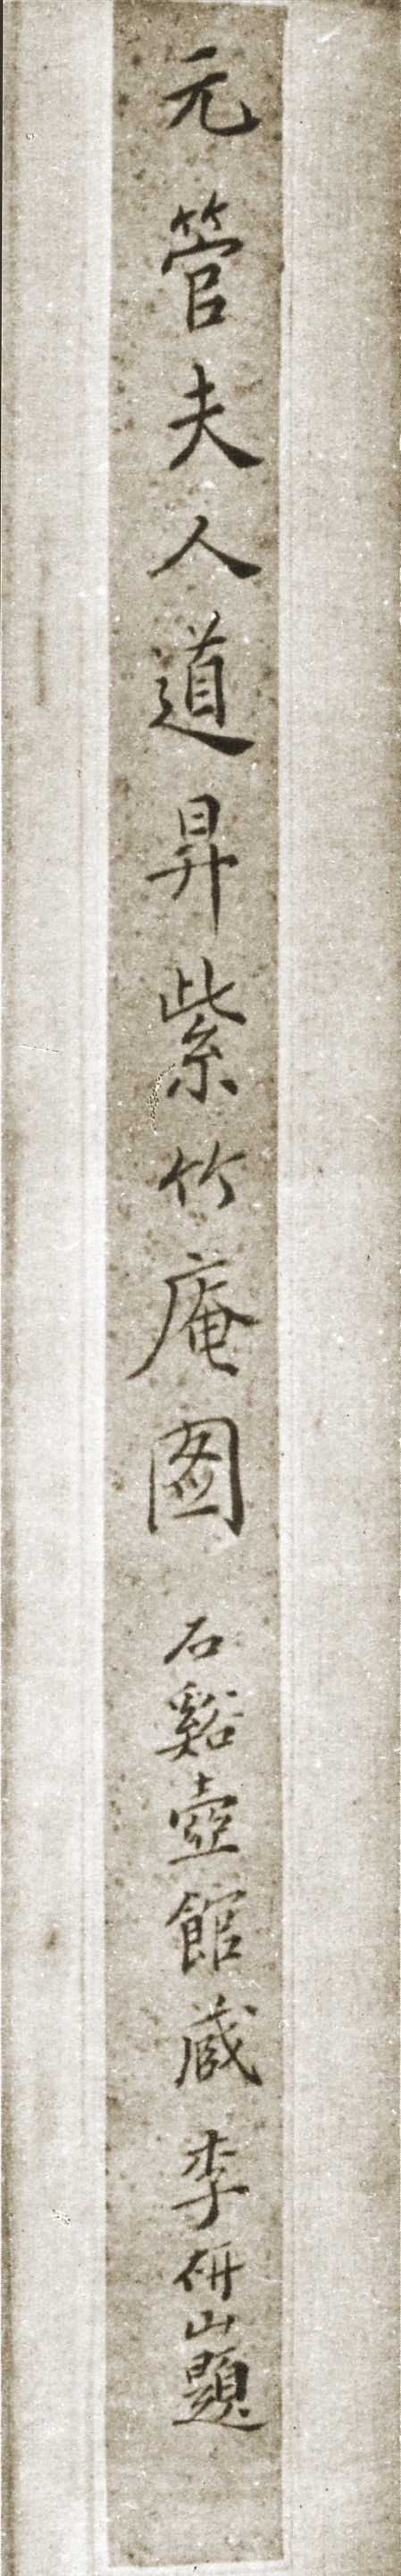 元管夫人道昇紫竹庵图石谿壺館蔵李研山題